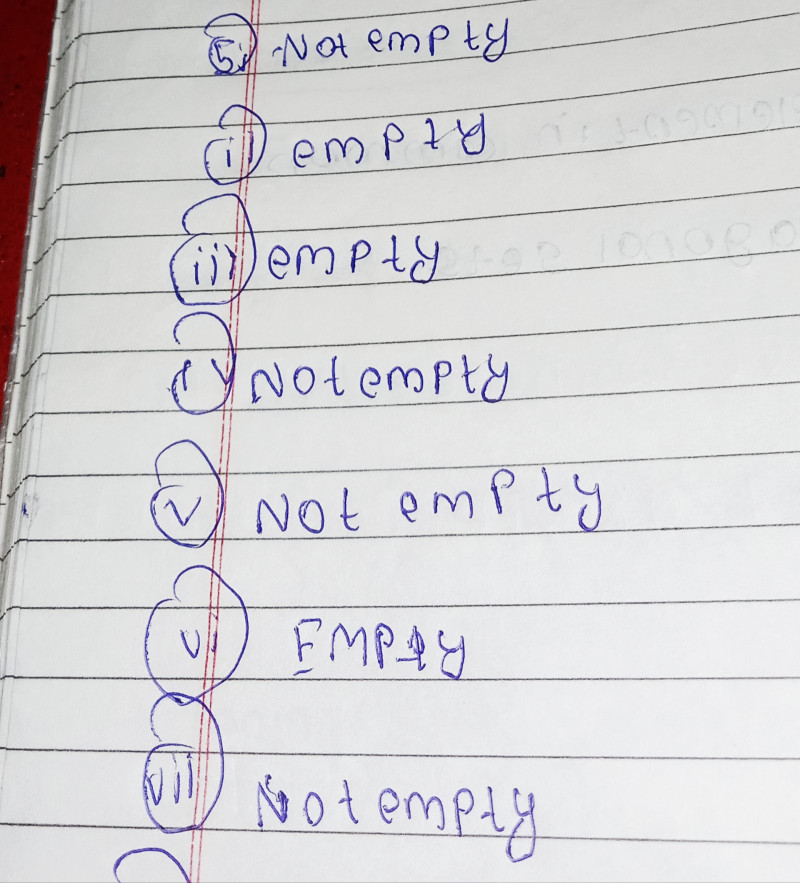 5i Not empty
ii empty
iii empty
iv Not empty
v Not empty
vi Empty
vii Not empty